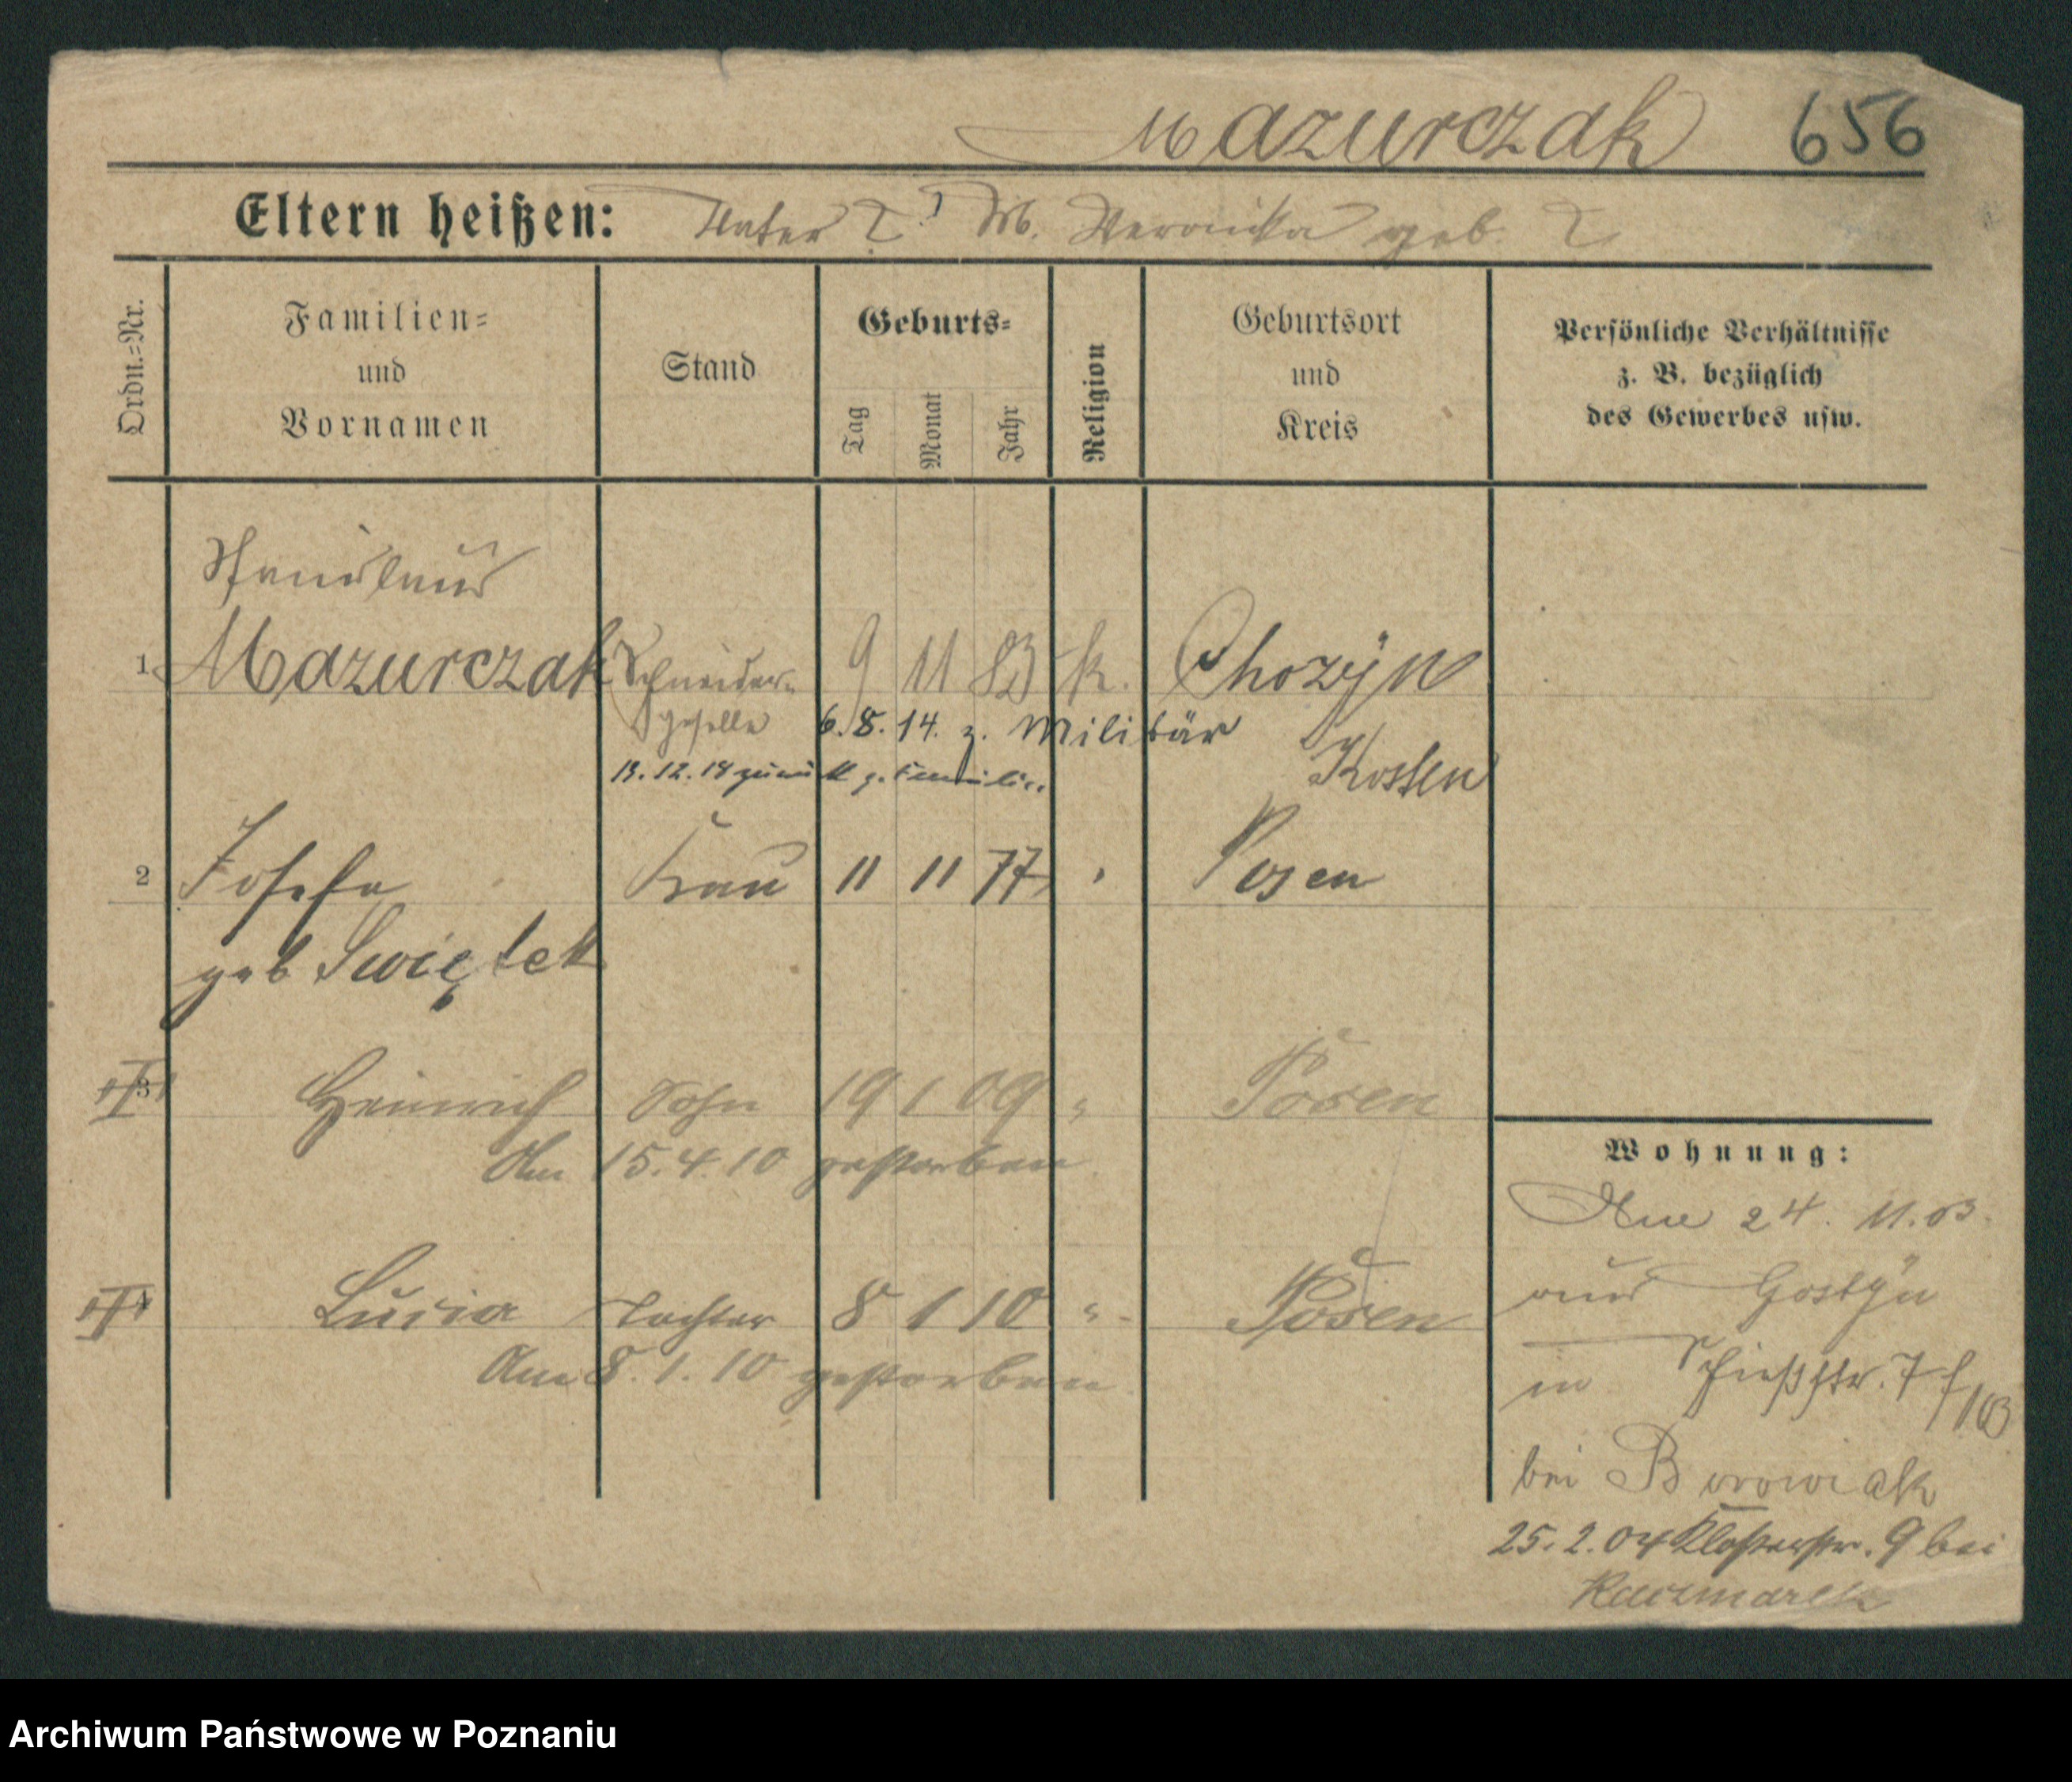 Mazurczak 656
Eltern heißen: Vater ? M. Veronika geb. ?
Ordn.=Nr.
Familien=
und
Vornamen
Stand
Geburts=
Tag
Monat
Jahr
Religion
Geburtsort
und
Kreis
Persönliche Verhältnisse
z. B. bezüglich
des Gewerbes usw.
Stanislaus
1 Mazurczak Schneider= 9 11 83 k. Chozyn
geselle 6.8.14. z. Militär Kosten
13.12.18 zurück z. Familie
2 Josefa Frau 11 11 77 " Posen
geb Swiętek
3 Heinrich Sohn 19 1 09 " Posen
Am 15.4.10 gestorben
4 Lucia Tochter 8 1 10 " Posen
Am 8.1.10 gestorben
Wohnung:
Am 24. 11. 03.
aus Gostyn
in Schießstr. 7
bei Borowiak
25.2.04 Klosterstr. 9 bei
Kaczmarek
Archiwum Państwowe w Poznaniu